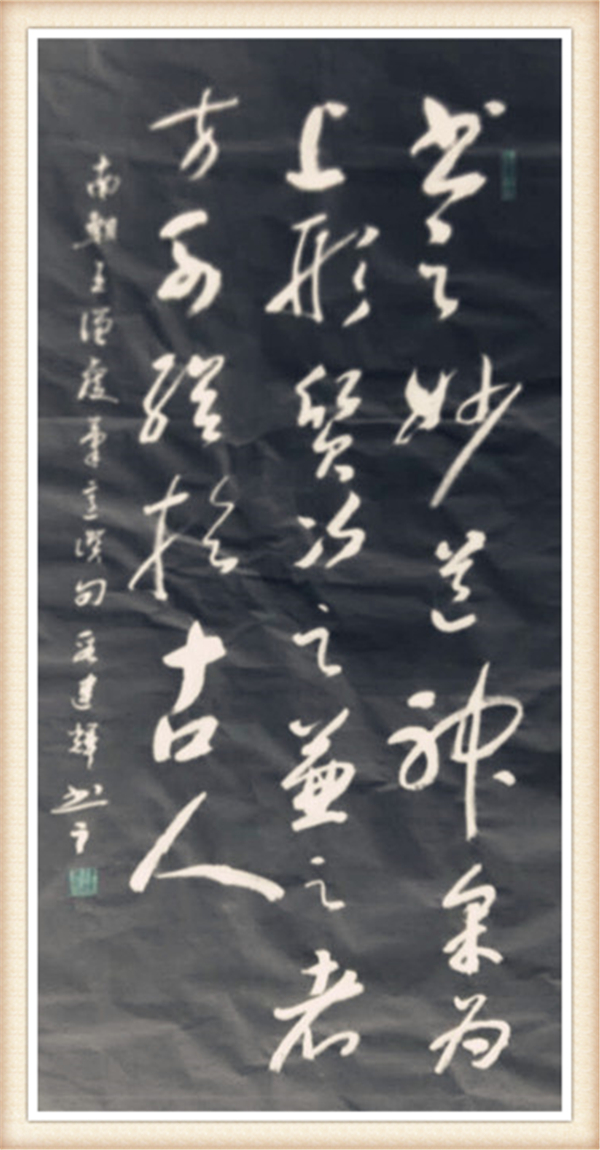 书之妙道神采为
上形质次之兼之者
方可绍於古人
南朝王僧虔筆意讚句 建輝书